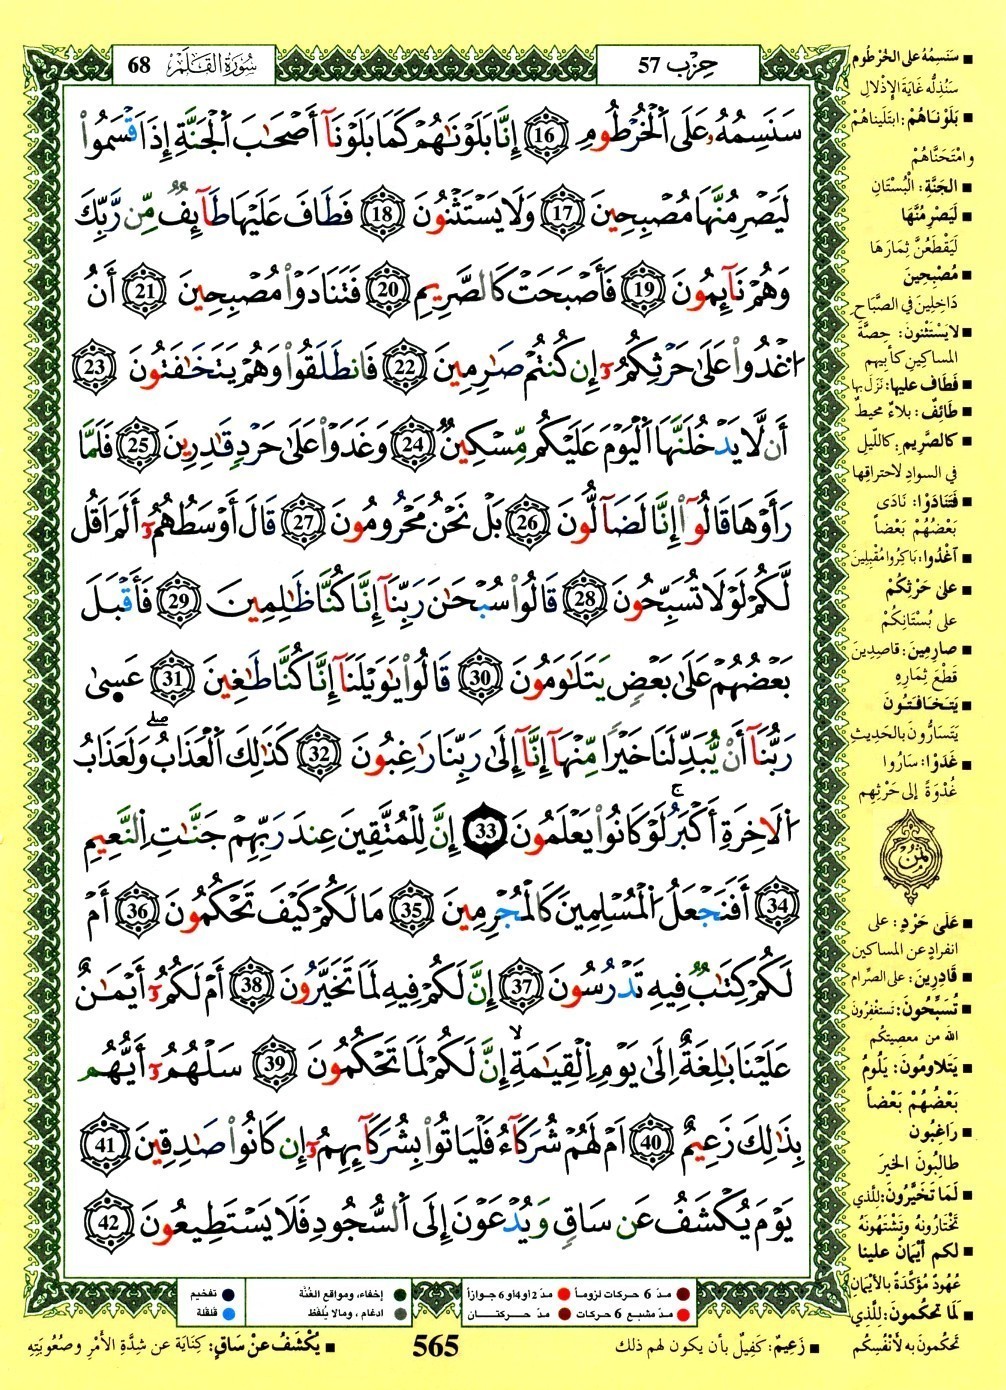 سُورَةُ القَلَمْ 68
حِزْب 57
سَنَسِمُهُۥ عَلَى ٱلْخُرْطُومِ 16 إِنَّا بَلَوْنَٰهُمْ كَمَا بَلَوْنَآ أَصْحَٰبَ ٱلْجَنَّةِ إِذَ اقْسَمُوا۟
لَيَصْرِمُنَّهَا مُصْبِحِينَ 17 وَلَا يَسْتَثْنُونَ 18 فَطَافَ عَلَيْهَا طَآئِفٌ مِّن رَّبِّكَ
وَهُمْ نَآئِمُونَ 19 فَأَصْبَحَتْ كَالصَّرِيمِ 20 فَتَنَادَوْا۟ مُصْبِحِينَ 21 أَنُ
ٱغْدُوا۟ عَلَىٰ حَرْثِكُمُۥٓ إِن كُنتُمْ صَٰرِمِينَ 22 فَانطَلَقُوا۟ وَهُمْ يَتَخَٰفَتُونَ 23
أَن لَّا يَدْخُلَنَّهَا ٱلْيَوْمَ عَلَيْكُم مِّسْكِينٌ 24 وَغَدَوْا۟ عَلَىٰ حَرْدٍ قَٰدِرِينَ 25 فَلَمَّا
رَأَوْهَا قَالُوٓا۟ إِنَّا لَضَآلُّونَ 26 بَلْ نَحْنُ مَحْرُومُونَ 27 قَالَ أَوْسَطُهُمُۥٓ أَلَمَ اقُل
لَّكُمْ لَوْلَا تُسَبِّحُونَ 28 قَالُوا۟ سُبْحَٰنَ رَبِّنَآ إِنَّا كُنَّا ظَٰلِمِينَ 29 فَأَقْبَلَ
بَعْضُهُمْ عَلَىٰ بَعْضٍ يَتَلَٰوَمُونَ 30 قَالُوا۟ يَٰوَيْلَنَآ إِنَّا كُنَّا طَٰغِينَ 31 عَسَىٰ
رَبُّنَآ أَنْ يُّبَدِّلَنَا خَيْرًا مِّنْهَآ إِنَّآ إِلَىٰ رَبِّنَا رَٰغِبُونَ 32 كَذَٰلِكَ ٱلْعَذَابُ ۖ وَلَعَذَابُ
ٱلَاخِرَةِ أَكْبَرُ ۚ لَوْ كَانُوا۟ يَعْلَمُونَ 33 إِنَّ لِلْمُتَّقِينَ عِندَ رَبِّهِمْ جَنَّٰتِ ٱلنَّعِيمِ
34 أَفَنَجْعَلُ ٱلْمُسْلِمِينَ كَالْمُجْرِمِينَ 35 مَا لَكُمْ كَيْفَ تَحْكُمُونَ 36 أَمْ
لَكُمْ كِتَٰبٌ فِيهِ تَدْرُسُونَ 37 إِنَّ لَكُمْ فِيهِ لَمَا تَخَيَّرُونَ 38 أَمْ لَكُمُۥٓ أَيْمَٰنٌ
عَلَيْنَا بَٰلِغَةٌ إِلَىٰ يَوْمِ ٱلْقِيَٰمَةِ ۙ إِنَّ لَكُمْ لَمَا تَحْكُمُونَ 39 سَلْهُمُۥٓ أَيُّهُم
بِذَٰلِكَ زَعِيمٌ 40 اَمْ لَهُمْ شُرَكَآءُ فَلْيَاتُوا۟ بِشُرَكَآئِهِمُۥٓ إِن كَانُوا۟ صَٰدِقِينَ 41
يَوْمَ يُكْشَفُ عَن سَاقٍ وَيُدْعَوْنَ إِلَى ٱلسُّجُودِ فَلَا يَسْتَطِيعُونَ 42
■ سَنَسِمُهُ على الخُرْطُوم
سَنُذِلُّه غَايَةَ الإِذْلالِ
■ بَلَوْنَاهُمْ: ابتَلَيناهُمْ
وامْتَحَنَّاهُمْ
■ الجَنَّةِ: الْبُسْتَانِ
■ لَيَصْرِمُنَّهَا
لَيَقْطَعُنَّ ثِمَارَهَا
■ مُصْبِحِينَ
دَاخِلِينَ في الصَّبَاح
■ لا يَسْتَثْنونَ: حِصَّةَ
المساكينِ كأبيهم
■ فَطَافَ عليها: نَزَلَ بها
■ طَائِفٌ: بلاءٌ محيطٌ
■ كالصَّرِيم: كاللّيل
في السوادِ لاحتراقِها
■ فَتَنَادَوْا: نَادَى
بَعْضُهُمْ بَعْضاً
■ اغْدُوا: بَاكِرُوا مُقْبِلِينَ
■ على حَرْثِكُمْ
على بُسْتَانِكُمْ
■ صارِمِينَ: قاصِدِينَ
قَطْعَ ثِمَارِهِ
■ يَتَخَافَتُونَ
يَتَسَارُّونَ بالحَدِيثِ
■ غَدَوْا: سَارُوا
غُدْوَةً إلى حَرْثِهِم
ثمن
■ عَلَى حَرْدٍ: على
انفرادٍ عن المساكين
■ قَادِرِينَ: على الصِّرام
■ تُسَبِّحُونَ: تَستَغْفِرُونَ
الله من معصيتكم
■ يَتَلاومُونَ: يَلُومُ
بَعْضُهُمْ بَعْضاً
■ رَاغِبُون
طالِبُونَ الخيرَ
■ لَمَا تَخَيَّرُونَ: للَّذي
تَخْتَارُونَهُ وتَشْتَهُونَهُ
■ لكم أَيْمَانٌ علينا
عُهُودٌ مُؤَكَّدَةٌ بالأَيْمَانِ
■ لَمَا تحكمونَ: لِلَّذي
تَحكمونَ به لأَنْفُسِكُم
مدّ 6 حركات لزوماً مدّ 2 أو 4 أو 6 جوازاً إخفاء، ومواقع الغُنَّة تفخيم
مدّ مشبع 6 حركات مدّ حركتان ادغام، ومالا يُلفظ قلقلة
■ زَعِيمٌ: كَفِيلٌ بأن يكون لهم ذلك
565
■ يُكْشَفُ عنْ سَاقٍ: كِنَايَة عن شِدَّةِ الأَمْرِ وصُعُوبَتِهِ